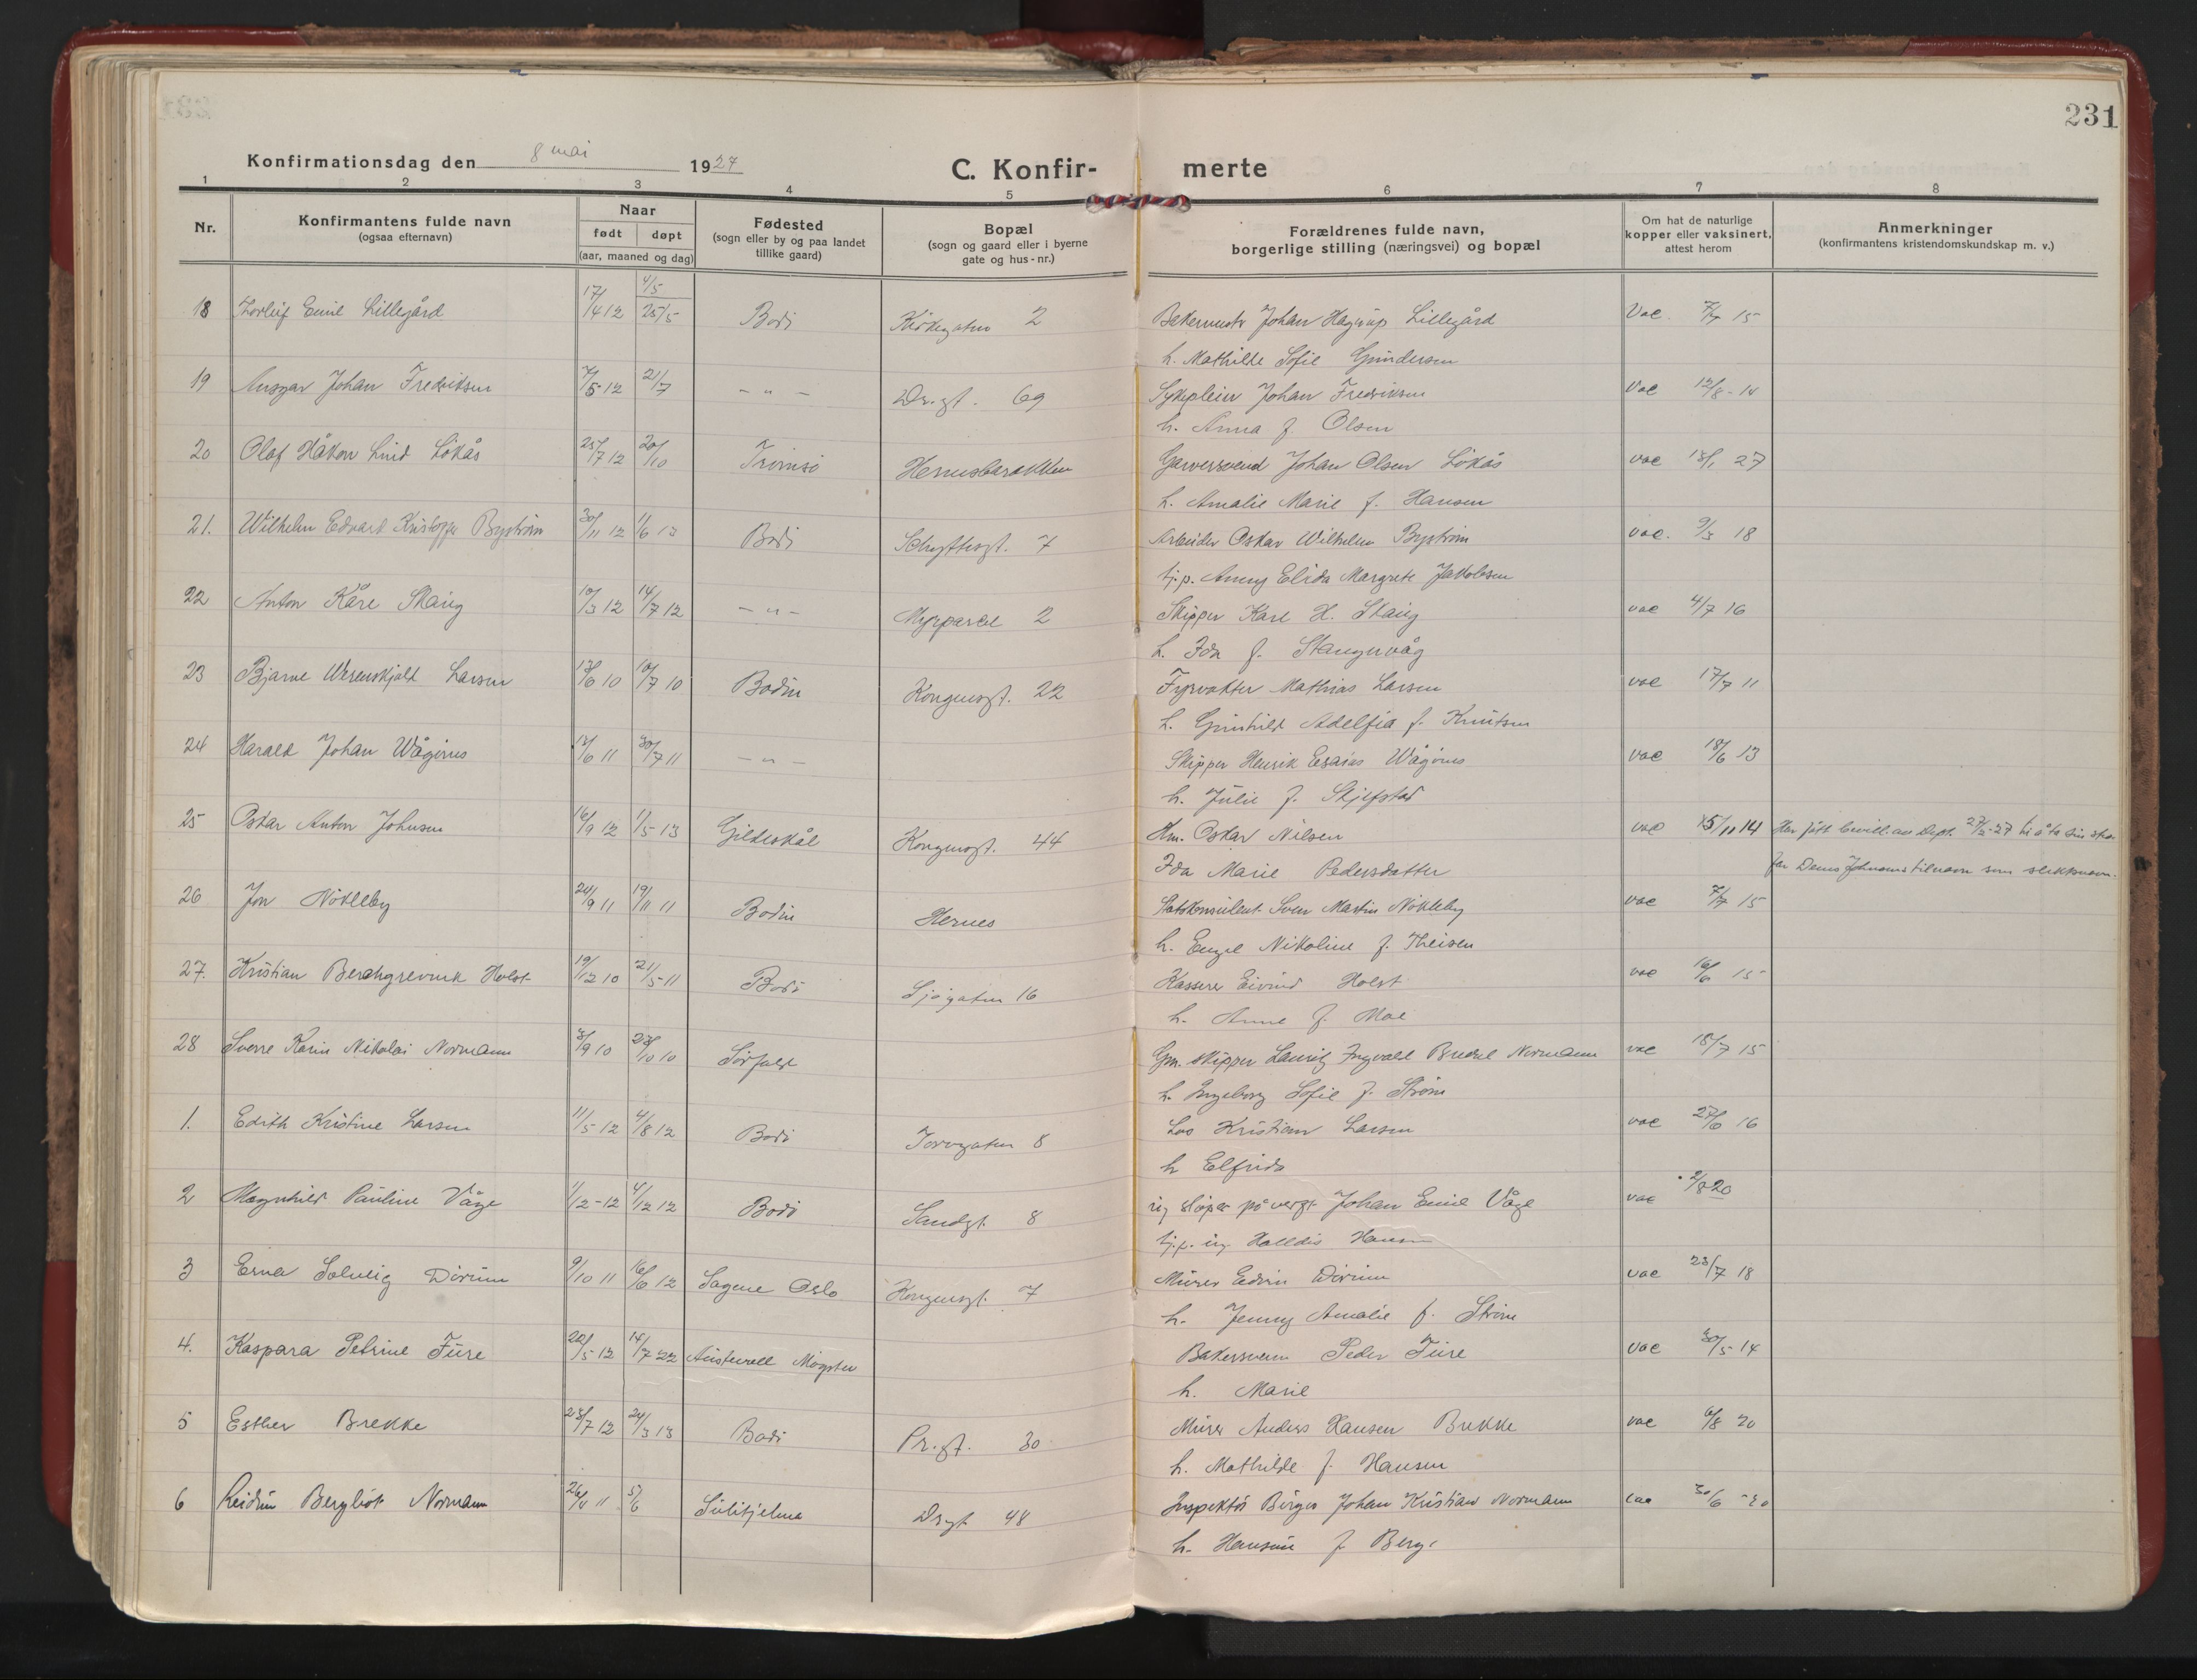 231
Konfirmationsdag den 8 mai 1927
C. Konfir- merte
1 2 3 4 5 6 7 8
Nr.
Konfirmantens fulde navn
(ogsaa efternavn)
Naar
født døpt
(aar, maaned og dag)
Fødested
(sogn eller by og paa landet
tillike gaard)
Bopæl
(sogn og gaard eller i byerne
gate og hus-nr.)
Forældrenes fulde navn,
borgerlige stilling (næringsvei) og bopæl
Om hat de naturlige
kopper eller vaksinert,
attest herom
Anmerkninger
(konfirmantens kristendomskundskap m. v.)
4/5
18 Thorleif Emil Lillegård 17/4 12 25/5 Bodø Kirkegaten 2 Bakermstr Johan Hagerup Lillegård Vac. 7/7 15
h. Mathilde Sofie Gundersen
19 Ansgar Johan Fredriksen 7/5 12 21/7 - " - Dr.gt. 69 Sykepleier Johan Fredriksen Vac 12/8 - 14
h. Anna f. Olsen
20 Olaf Håkon Lind Løkås 25/7 12 20/10 Tromsø Hernesbarakken Garversvend Johan Olsen Løkås vac 18/1 27
h. Amalie Marie f. Hansen
21. Wilhelm Edvard Kristoffer Byström 30/11 12 1/6 13 Bodø Schyttesgt. 7 Arbeider Oskar Wilhelm Byström vac. 9/3 18
tj.p. Anny Elida Margrete Jakobsen
22 Anton Kåre Skaug 10/3 12 14/7 12 - " - Myrparcel 2 Skipper Karl H. Skaug vac 4/7 16
h. Ida f. Stangervåg
23 Bjarne Werenskjold Larsen 13/6 10 10/7 10 Bodin Kongensgt. 22 Fyrvokter Mathias Larsen vac 17/7 11
h. Gunhild Adelfia f. Knutsen
24 Harald Johan Wågønes 12/6 11 30/7 11 - " - Skipper Henrik Esaias Wågønes vac 18/6 13
h. Julie f. Skjefstad
25 Oskar Anton Johnsen 16/9 12 1/5 - 13 Gildeskål Kongensgt. 44 Hm. Oskar Nilsen vac 15/11 14 Har fått bevill. av Dept. 27/2-27 til å ta sin
Ida Marie Pedersdatter far Johnsens tilnavn som slektsnavn.
26 Jon Nøkleby 24/9 11 19/11 11 Bodin Hernes Statskonsulent Sven Martin Nøkleby vac 7/7 15
h. Engel Nikoline f. Theisen
27. Kristian Berchgrevink Holst 19/12 10 21/5 - 11 Bodø Sjøgaten 16 Kasserer Eivind Holst vac 16/6 15
h. Anne f. Moe
28 Sverre Karin Nikolai Normann 3/9 10 23/10 10 Sørfold Gm. skipper Lauritz Ingvald Bredal Normann vac 18/7 15
h. Ingeborg Sofie f. Strøm
1. Edith Kristine Larsen 11/5 - 12 4/8 12 Bodø Torvgaten 8 Los Kristian Larsen vac 27/6 16
h Elfrida
2 Magnhild Pauline Våge 1/2 - 12 4/12 12 Bodø Sandgt. 8 ug støper på verft Johan Emil Våge vac 2/8 20
tj.p. ug. Halldis Hansen
3 Erna Solveig Dørum 9/10 11 16/6 12 Sagene Oslo Kongensgt. 7 Murer Edvin Dørum vac 23/7 18
h. Jenny Amalie f. Strøm
4. Kaspara Petrine Fure 22/5 - 12 14/7 22 Austevoll Møgster Bakersvenn Peder Fure vac 30/5 - 14
h. Marie
5 Esther Brekke 23/7 12 24/3 13 Bodø Pr.gt. 30 Murer Anders Hansen Brekke vac 6/8 20
h. Mathilde f. Hansen
6 Reidun Bergliot Normann 26/4 11 5/6 Sulitjelma Drgt 48 Inspektør Birger Johan Kristian Normann vac 30/6 - 20
h. Hansine f Berg.